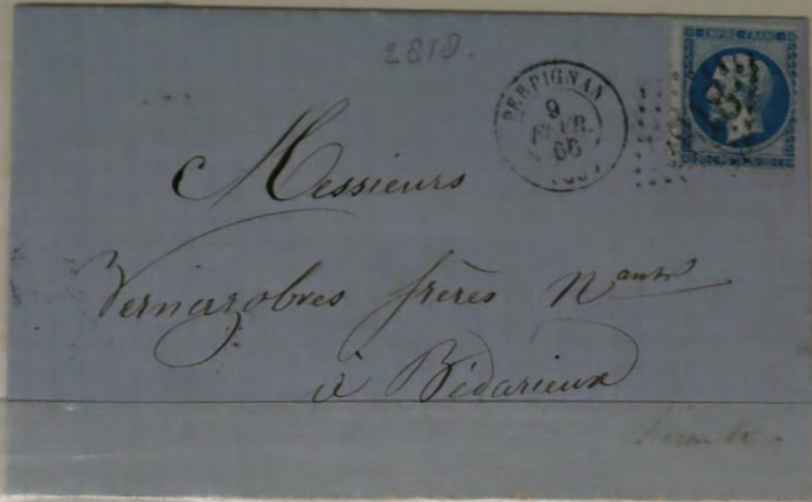 2818.
PERPIGNAN
9
FEVR.
66
EMPIRE FRANC
Messieurs
Vernazobres frères N^ants
à Bédarieux